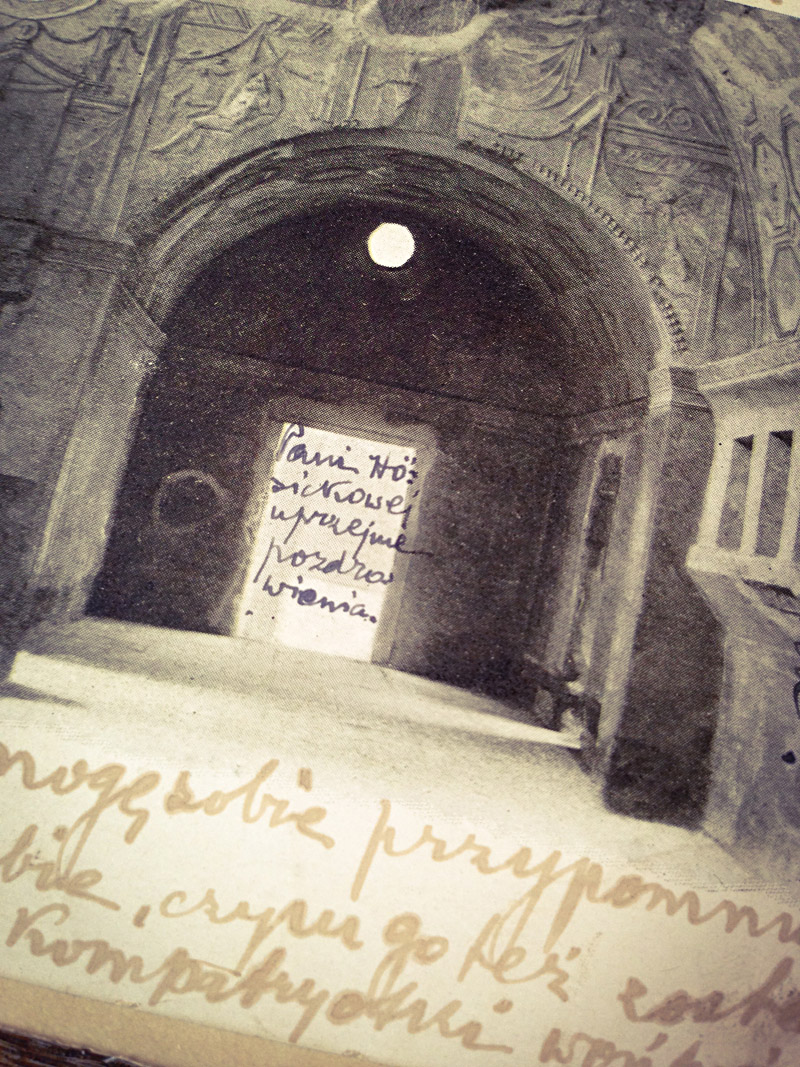 Pani Hö-
sickowej
uprzejme
pozdro
wienia.
mogę sobie przypomnie
bie, czym go też
Kompatryotki